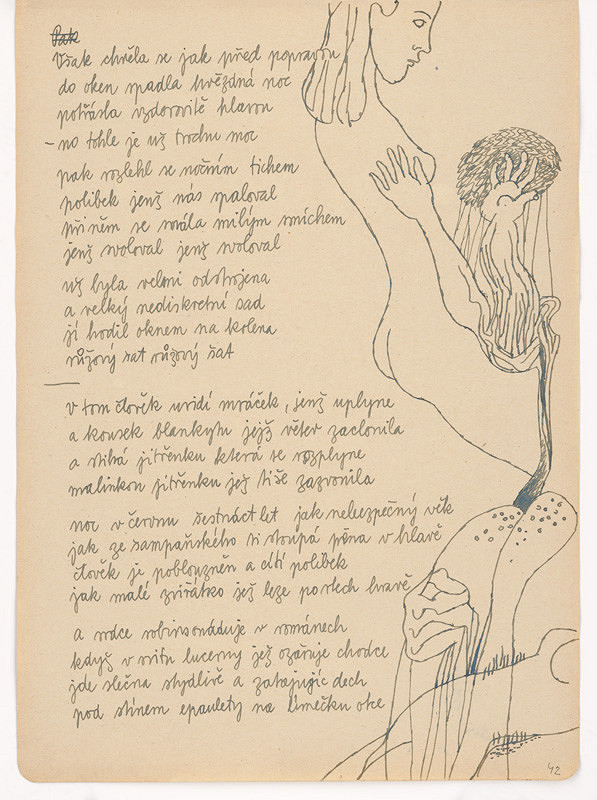 Pak
Však chvěla se jak před popravou
do oken spadla hvězdná noc
potřásla vzdorovitě hlavou
– no tohle je už trochu moc
pak rozlehl se nočním tichem
polibek jenž nás spaloval
při něm se smála milým smíchem
jenž svoloval jenž svoloval
už byla velmi odstrojena
a velký nediskretní sad
jí hodil oknem na kolena
růžový šat růžový šat
v tom člověk uvidí mráček, jenž uplyne
a kousek blankytu jejž větev zaclonila
a stihá jitřenku která se rozplyne
malinkou jitřenku jež tiše zazvonila
noc v červnu šestnáct let jak nebezpečný věk
jak ze šampaňského ti stoupá pěna v hlavě
člověk je poblouzněn a cítí polibek
jak malé zvířátko jež leze po rtech hravě
a srdce robinsonáduje v románech
když v svitu lucerny jež ozařuje chodce
jde slečna stydlivě a zatajujíc dech
pod stínem epaulety na límečku otce
42